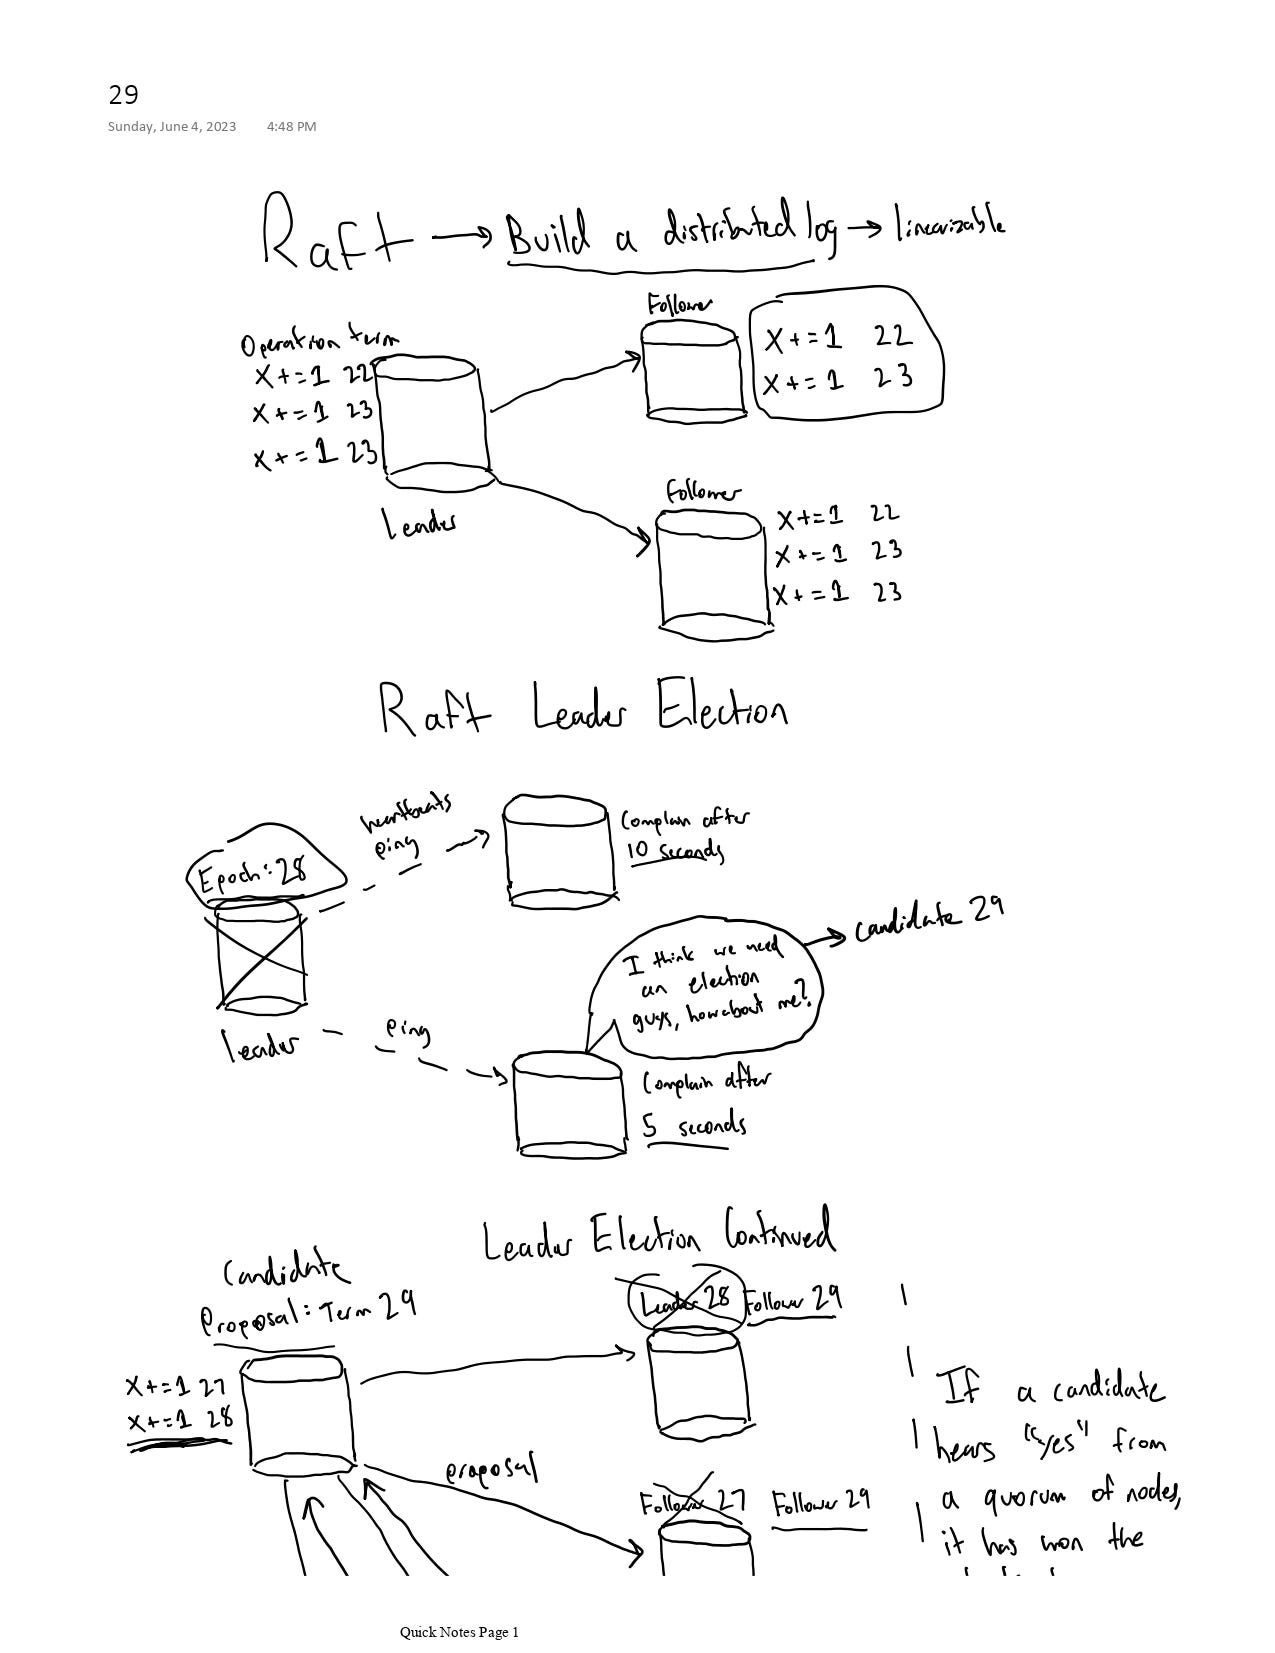 29
Sunday, June 4, 2023 4:48 PM
Raft → Build a distributed log → linearizable
Operation term
x += 1 22
x += 1 23
x += 1 23
Leader
Follower
x += 1 22
x += 1 23
Follower
x += 1 22
x += 1 23
x += 1 23
Raft Leader Election
Epoch: 28
leader
heartbeats
ping
Complain after
10 seconds
ping
I think we need
an election
guys, how about me?
candidate 29
Complain after
5 seconds
Leader Election Continued
Candidate
Proposal: Term 29
x += 1 27
x += 1 28
Leader 28 Follower 29
proposal
Follower 27 Follower 29
If a candidate
hears "yes" from
a quorum of nodes,
it has won the
Quick Notes Page 1